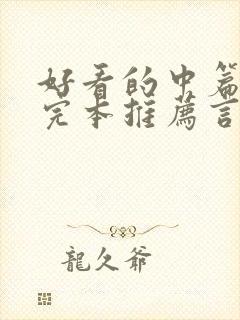 好看的中篇
完本推薦言
龍久爺